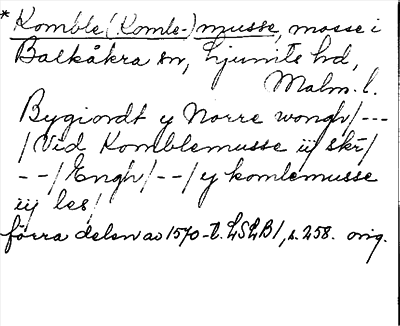 *Komble (Komle-) musse, mosse i
Balkåkra sn, Ljunits hd,
Malm. l.
Bygiordt y Norre wongh/---
/Vid Komblemusse iij skr/
--/Engh/--/y komlemusse
iij les/
förra delen av 1570-t. LSLB1, s. 258. orig.